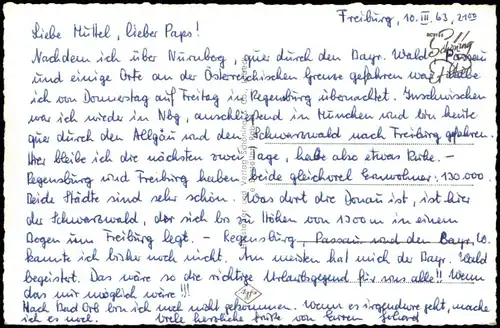 Freiburg, 10. III. 63, 21⁰⁰
Liebe Muttel, lieber Paps!
Nachdem ich über Nürnberg, quer durch den Bayr. Wald, Passau
und einige Orte an der Österreichischen Grenze gefahren war, habe
ich von Donnerstag auf Freitag in Regensburg übernachtet. Inzwischen
war ich wieder in Nbg, anschließend in München und bin heute
quer durch den Allgäu und den Schwarzwald nach Freiburg gefahren.
Hier bleibe ich die nächsten zwei Tage, habe also etwas Ruhe. –
Regensburg und Freiburg haben beide gleichviel Einwohner: 130.000.
Beide Städte sind sehr schön. Was dort die Donau ist, ist hier
der Schwarzwald, der sich bis zu Höhen von 1300 m in einem
Bogen um Freiburg legt. – Regensburg, Passau und den Bayr. W.
kannte ich bisher noch nicht. Am meisten hat mich der Bayr. Wald
begeistert. Das wäre so die richtige Urlaubsgegend für uns alle!! Wenn
das mir möglich wäre!!!
Nach Bad Orb bin ich noch nicht gekommen. Wenn es irgendwie geht, mache
ich es noch. Viele herzliche Grüße von Eurem